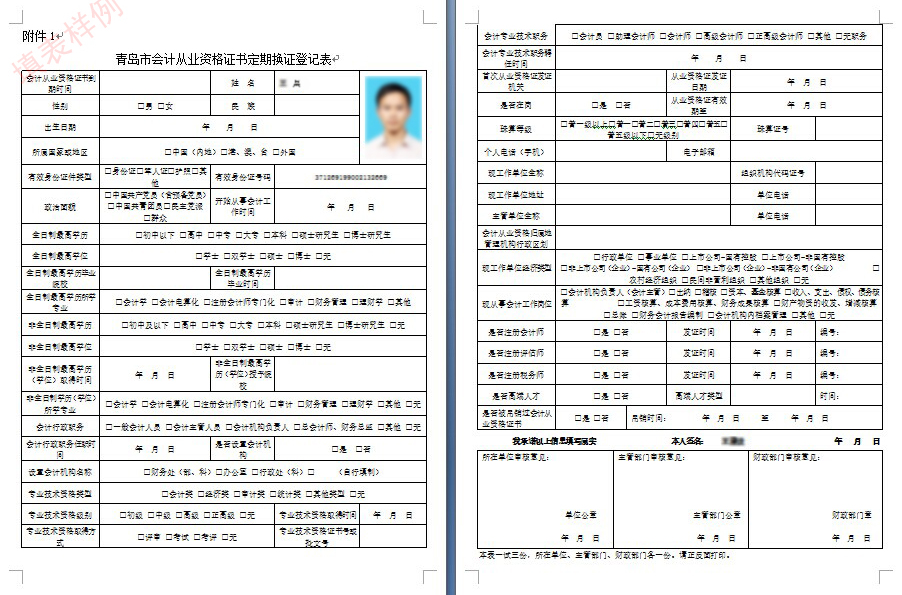 填表样例
附件 1
青岛市会计从业资格证书定期换证登记表
会计从业资格证书到期时间 姓 名
性别 □男 □女 民 族
出生日期 年 月 日
所属国家或地区 □中国（内地）□港、澳、台 □外国
有效身份证件类型 □身份证□军人证□护照□其他 有效身份证号码 371269199002132669
政治面貌 □中国共产党员（含预备党员）□中国共青团员□民主党派□群众 开始从事会计工作时间 年 月 日
全日制最高学历 □初中以下 □高中 □中专 □大专 □本科 □硕士研究生 □博士研究生
全日制最高学位 □学士 □双学士 □硕士 □博士 □无
全日制最高学历毕业院校 全日制最高学历毕业时间
全日制最高学历所学专业 □会计学 □会计电算化 □注册会计师专门化 □审计 □财务管理 □理财学 □其他
非全日制最高学历 □初中及以下 □高中 □中专 □大专 □本科 □硕士研究生 □博士研究生 □无
非全日制最高学位 □学士 □双学士 □硕士 □博士 □无
非全日制最高学历（学位）取得时间 年 月 日 非全日制最高学历（学位）授予院校
非全日制学历（学位）所学专业 □会计学 □会计电算化 □注册会计师专门化 □审计 □财务管理 □理财学 □其他 □无
会计行政职务 □一般会计人员 □会计主管人员 □会计机构负责人 □总会计师、财务总监 □其他 □无
会计行政职务任职时间 年 月 日 是否设置会计机构 □是 □否
设置会计机构名称 □财务处（部、科）□办公室 □行政处（科）□ （自行填制）
专业技术资格类型 □会计类 □经济类 □审计类 □统计类 □其他类型 □无
专业技术资格级别 □初级 □中级 □高级 □正高级 □无 专业技术资格取得时间 年 月 日
专业技术资格取得方式 □评审 □考试 □考评 □无 专业技术资格证书号或批文号
会计专业技术职务 □会计员 □助理会计师 □会计师 □高级会计师 □正高级会计师 □其他 □无职务
会计专业技术职务聘任时间 年 月 日
首次从业资格证发证机关 从业资格证发证日期 年 月 日
是否在岗 □是 □否 从业资格证有效期至 年 月 日
珠算等级 □普一级以上□普一□普二□普三□普四□普五□普五级以下□无级别 珠算证号
个人电话（手机） 电子邮箱
现工作单位全称 组织机构代码证号
现工作单位地址 单位电话
主管单位全称 单位电话
会计从业资格归属地管理机构行政区划
现工作单位经济类型 □行政单位 □事业单位 □上市公司-国有控股 □上市公司-非国有控股 □非上市公司（企业）-国有公司（企业） □非上市公司（企业）-非国有公司（企业） □农村经济组织 □民间非营利组织 □其他组织 □无
现从事会计工作岗位 □会计机构负责人（会计主管）□出纳 □稽核 □资本、基金核算 □收入、支出、债权、债务核算 □工资核算、成本费用核算、财务成果核算 □财产物资的收发、增减核算 □总账 □财务会计报告编制 □会计机构内档案管理 □其他 □无
是否注册会计师 □是 □否 发证时间 年 月 日 编号：
是否注册评估师 □是 □否 发证时间 年 月 日 编号：
是否注册税务师 □是 □否 发证时间 年 月 日 编号：
是否高端人才 □是 □否 高端人才类型 时间：
是否被吊销过会计从业资格证书 □是 □否 吊销时间： 年 月 日 至 年 月 日
我承诺以上信息填写属实 本人签名： 年 月 日
所在单位审核意见： 主管部门审核意见： 财政部门审核意见：
单位公章 主管部门公章 财政部门章
年 月 日 年 月 日 年 月 日
本表一试三份，所在单位、主管部门、财政部门各一份。请正反面打印。